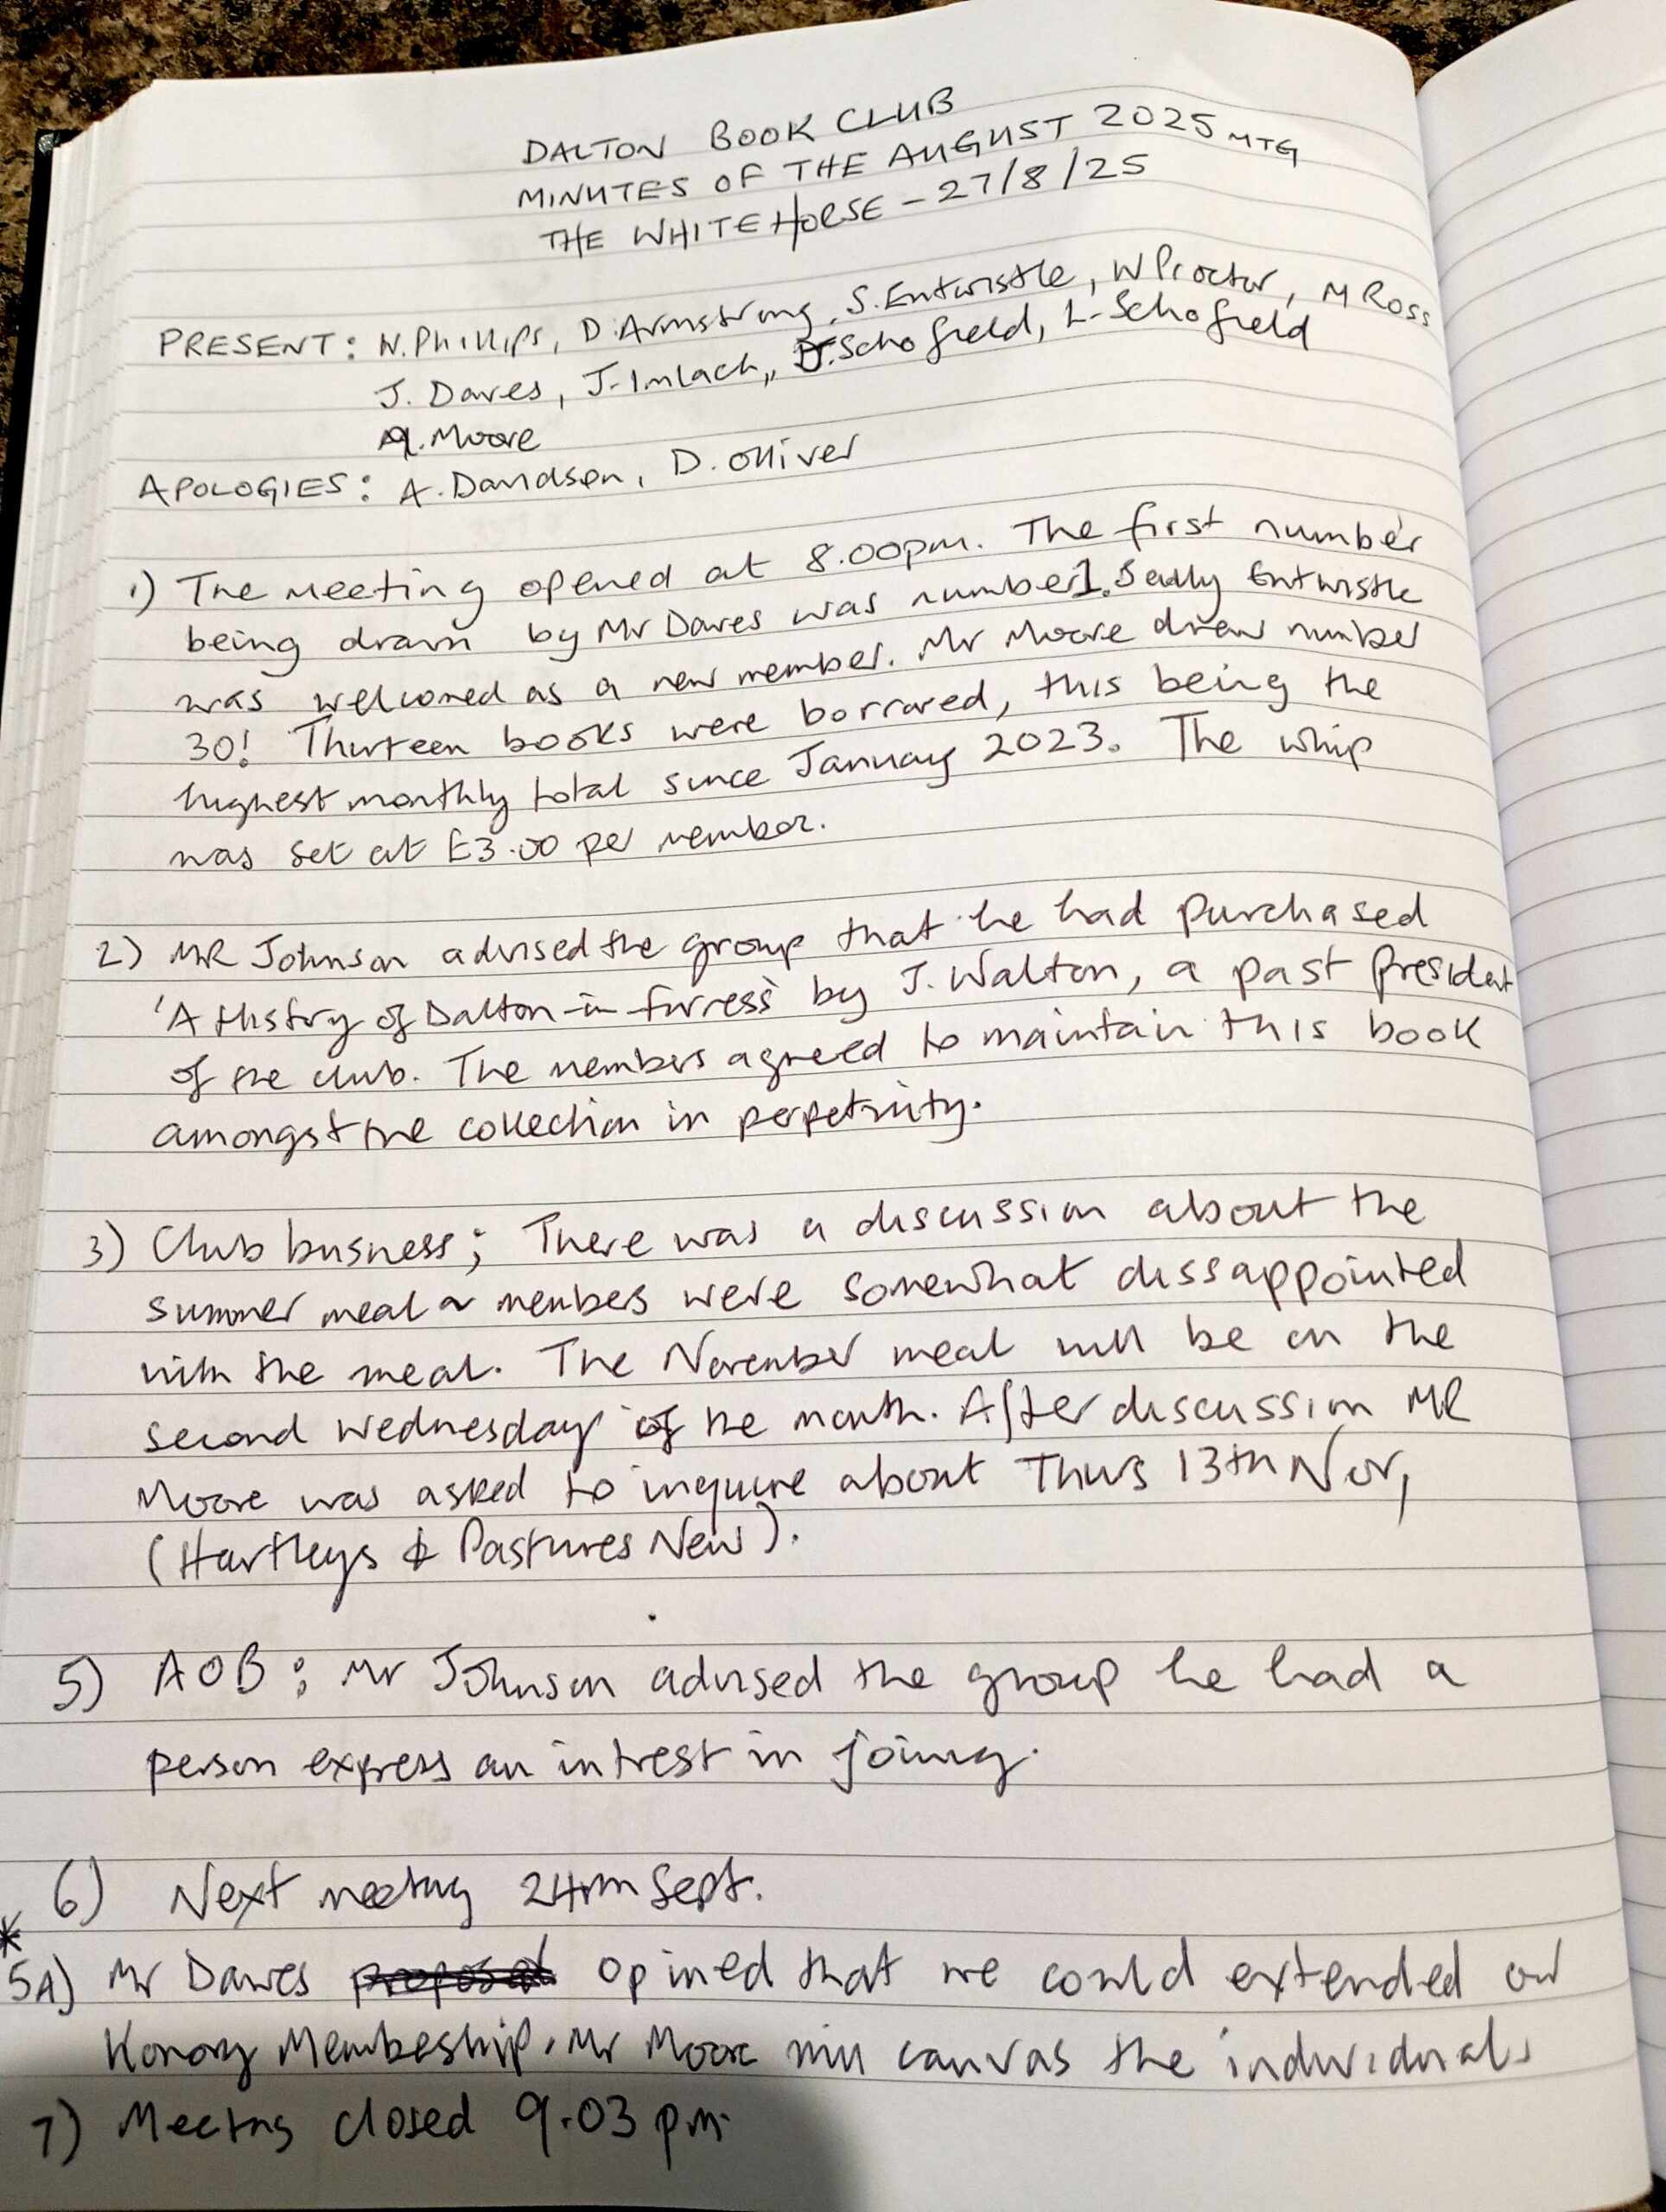 DALTON BOOK CLUB
MINUTES OF THE AUGUST 2025 MTG
THE WHITE HORSE - 27/8/25
PRESENT: N. Phillips, D. Armstrong, S. Entwistle, W Proctor, M Ross
J. Dawes, J. Imlach, J. Schofield, L. Schofield
A. Moore
APOLOGIES: A. Davidson, D. Olliver
1) The meeting opened at 8.00pm. The first number
being drawn by Mr Dawes was number 1. Sadly Entwistle
was welcomed as a new member. Mr Moore drew number
30! Thirteen books were borrowed, this being the
highest monthly total since January 2023. The whip
was set at £3.00 per member.
2) MR Johnson advised the group that he had purchased
'A History of Dalton-in-Furness' by J. Walton, a past President
of the club. The members agreed to maintain this book
amongst the collection in perpetuity.
3) Club busness; There was a discussion about the
summer meal & members were somewhat dissappointed
with the meal. The November meal will be on the
second Wednesday of the month. After discussion MR
Moore was asked to inquire about Thurs 13th Nov,
(Hartleys & Pastures New).
5) AOB: Mr Johnson advised the group he had a
person express an intrest in joining.
6) Next meeting 24th Sept.
* 5A) Mr Dawes opined that we could extended our
Honory Membeship. Mr Moore will canvas the individuals
7) Meeting closed 9.03 pm.